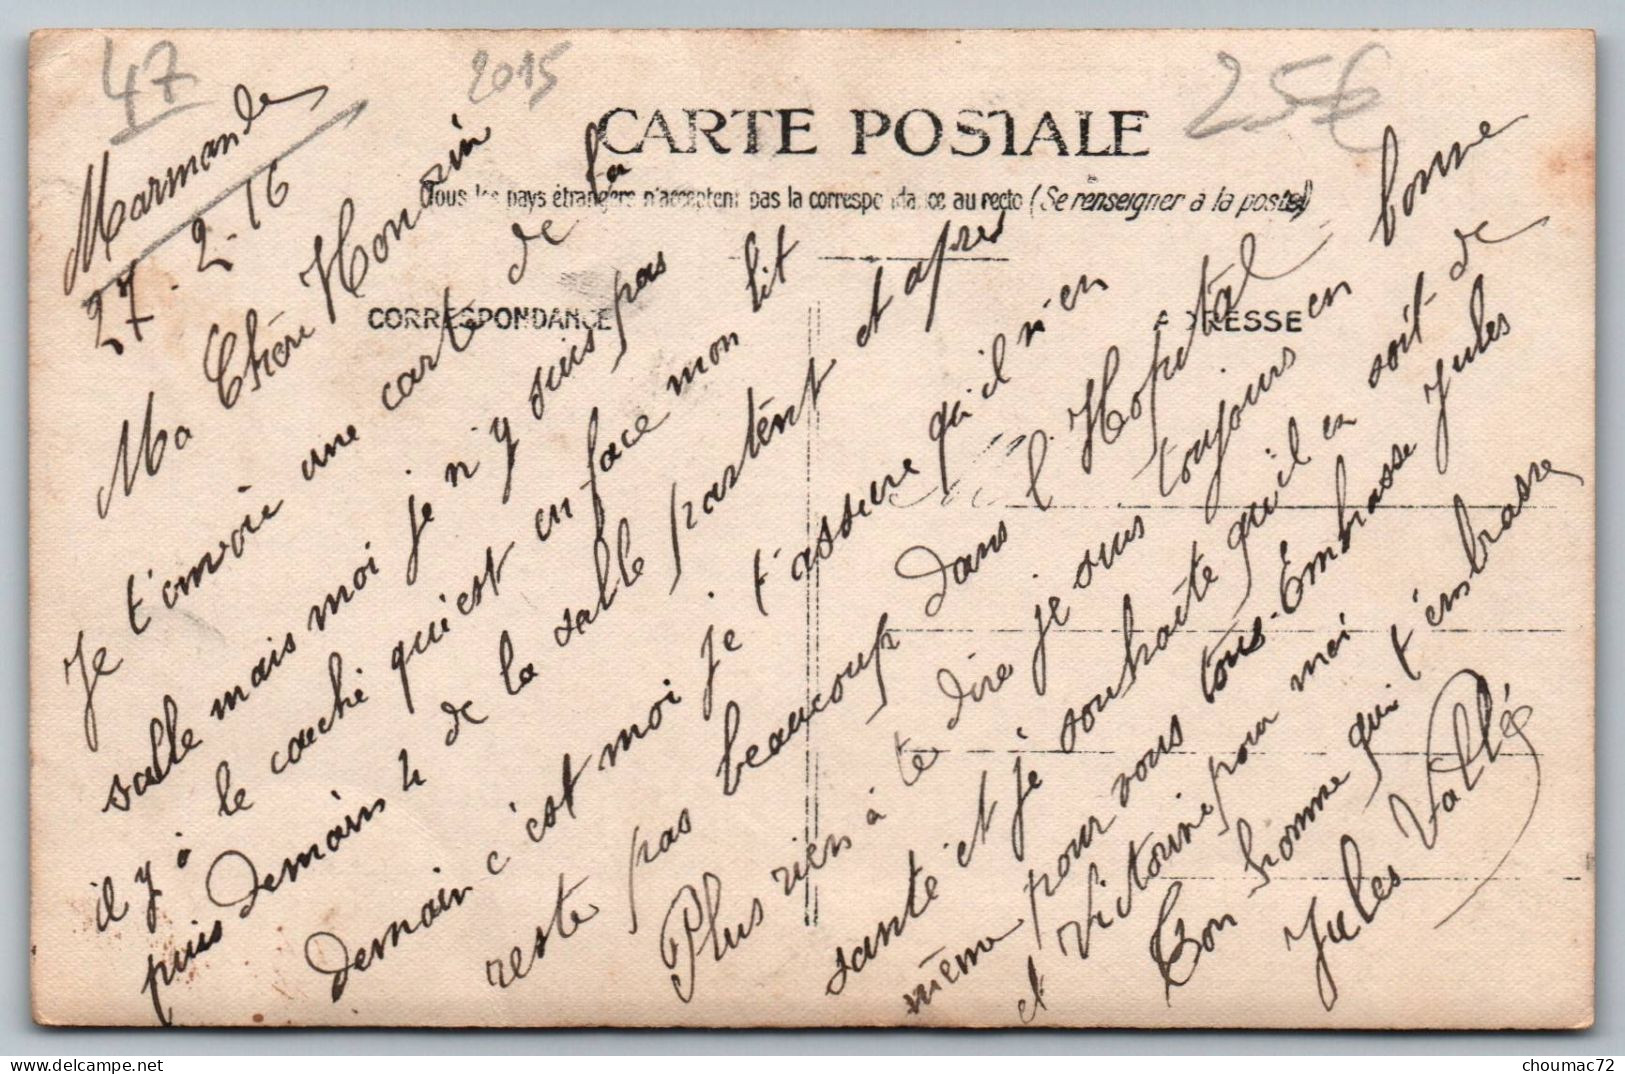 47
2015
25€
CARTE POSTALE
Tous les pays étrangers n'acceptent pas la correspondance au recto (Se renseigner à la poste)
CORRESPONDANCE
ADRESSE
Marmande
27-2-16
Ma Chère
Je t'envoie une carte de la
salle mais moi je n'y suis pas
il y à le couché qui est en face mon lit
puis demain 4 de la salle partent et apres
demain c'est moi. je t'assure qu'il n'en
reste pas beaucoup dans l'Hopital
Plus rien à te dire je suis toujours en bonne
santé et je souhaite qu'il en soit de
même pour vous tous. Embrasse Jules
et Victorine pour moi
Ton homme qui t'embrasse
Jules Vallé
choumac72